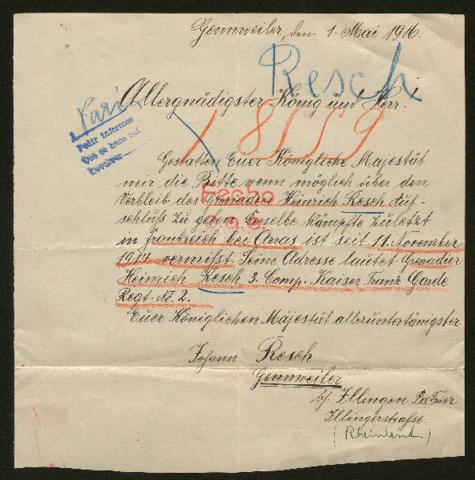 Gennweiler, den 1. Mai 1916.
Resch
Allergnädigster König und Herr!
Paris
Pedir informes
Que se hace así
Devolver
18559
Gestatten Euer Königliche Majestät
mir die Bitte wenn möglich über den
Verbleib des Grenadier Heinrich Resch Auf-
schluß zu geben. Derselbe kämpfte zuletzt
in Frankreich bei Arras ist seit 11. November
1914 vermißt. Seine Adresse lautet Grenadier
Heinrich Resch 3. Comp. Kaiser Franz Garde
Regt. No. 2.
Fecho
Euer Königlichen Majestät alleruntertänigster
Johann Resch
Gennweiler
b/ Illingen Bz. Trier
Illingerstrasse.
(Rheinland.)